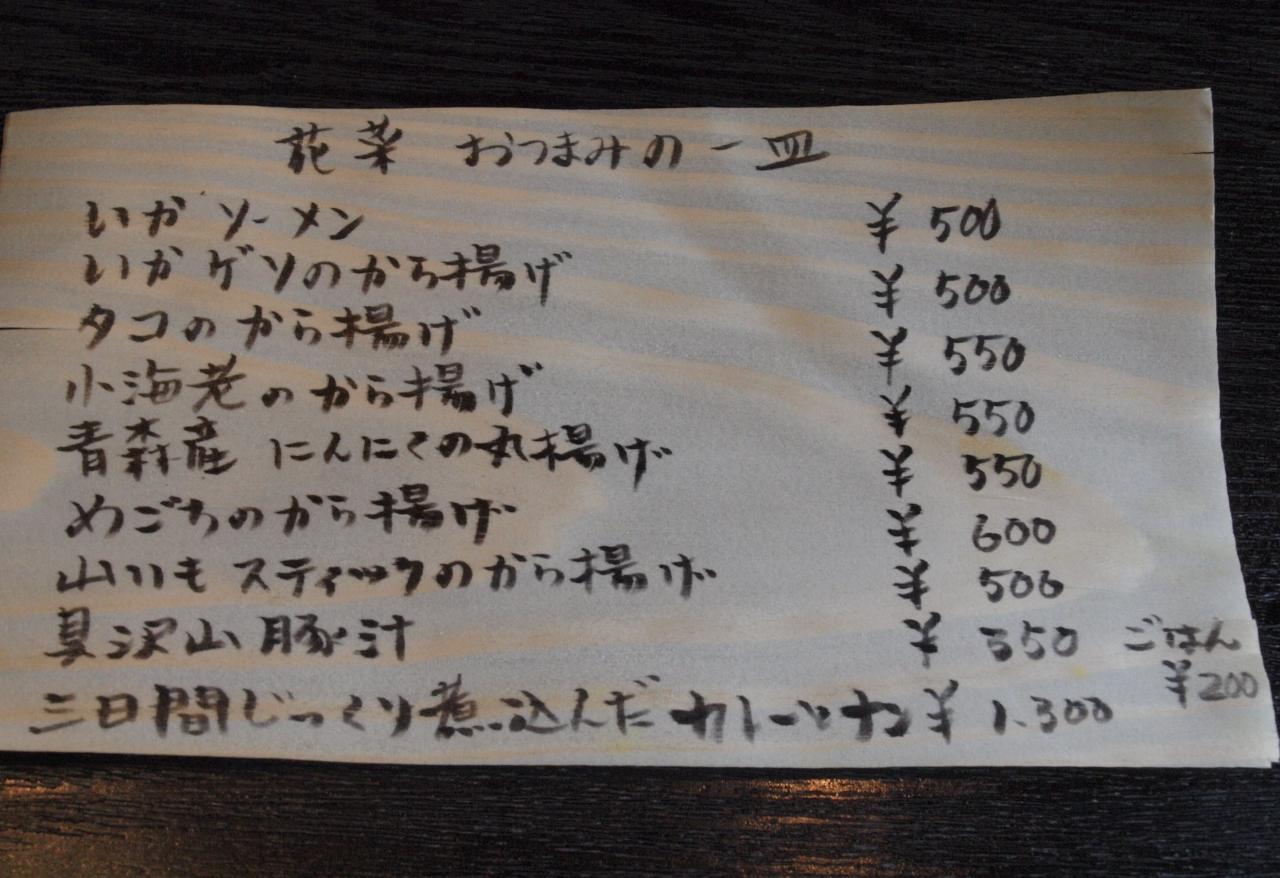 花菜 おつまみの一皿
いか ソーメン ¥500
いか ゲソのから揚げ ¥500
タコのから揚げ ¥550
小海老のから揚げ ¥550
青森産 にんにくの丸揚げ ¥550
めごちのから揚げ ¥600
山いも スティックのから揚げ ¥500
具沢山 豚汁 ¥550 ごはん ¥200
三日間じっくり煮込んだ カレーとナン ¥1.300